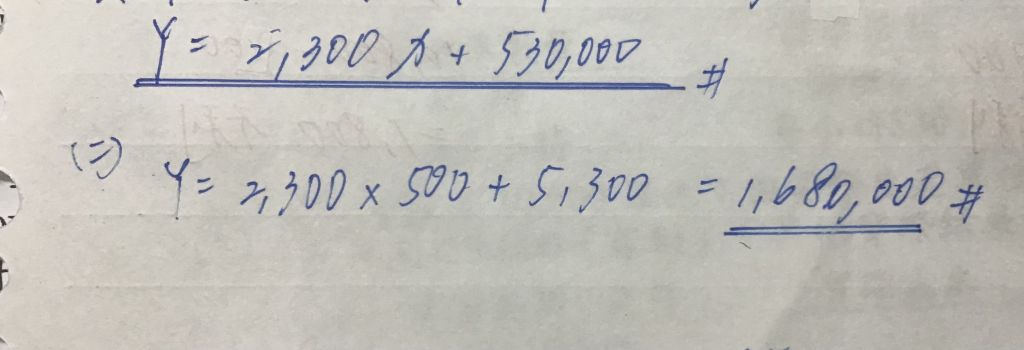 Y = 2,300 X + 530,000 #
(二) Y = 2,300 x 500 + 5,300 = 1,680,000 #